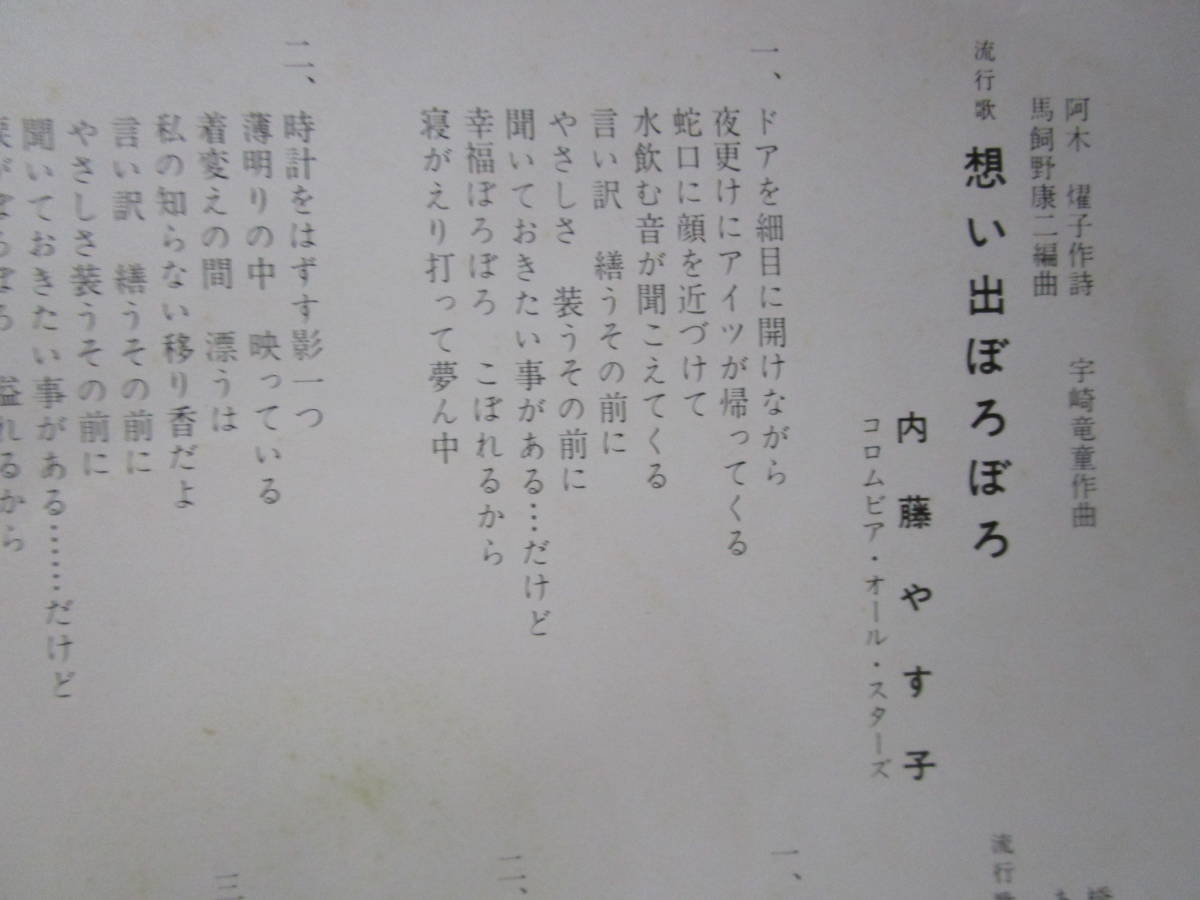 阿木　燿子作詩　　宇崎竜童作曲
馬飼野康二編曲
流行歌　想い出ぼろぼろ
内藤やす子
コロムビア・オール・スターズ
一、ドアを細目に開けながら
夜更けにアイツが帰ってくる
蛇口に顔を近づけて
水飲む音が聞こえてくる
言い訳　繕うその前に
やさしさ　装うその前に
聞いておきたい事がある…だけど
幸福ぼろぼろ　こぼれるから
寝がえり打って夢ん中
二、時計をはずす影一つ
薄明りの中　映っている
着変えの間　漂うは
私の知らない移り香だよ
言い訳　繕うその前に
やさしさ装うその前に
聞いておきたい事がある……だけど
涙がぼろぼろ　溢れるから
流行歌
一、
二、
三